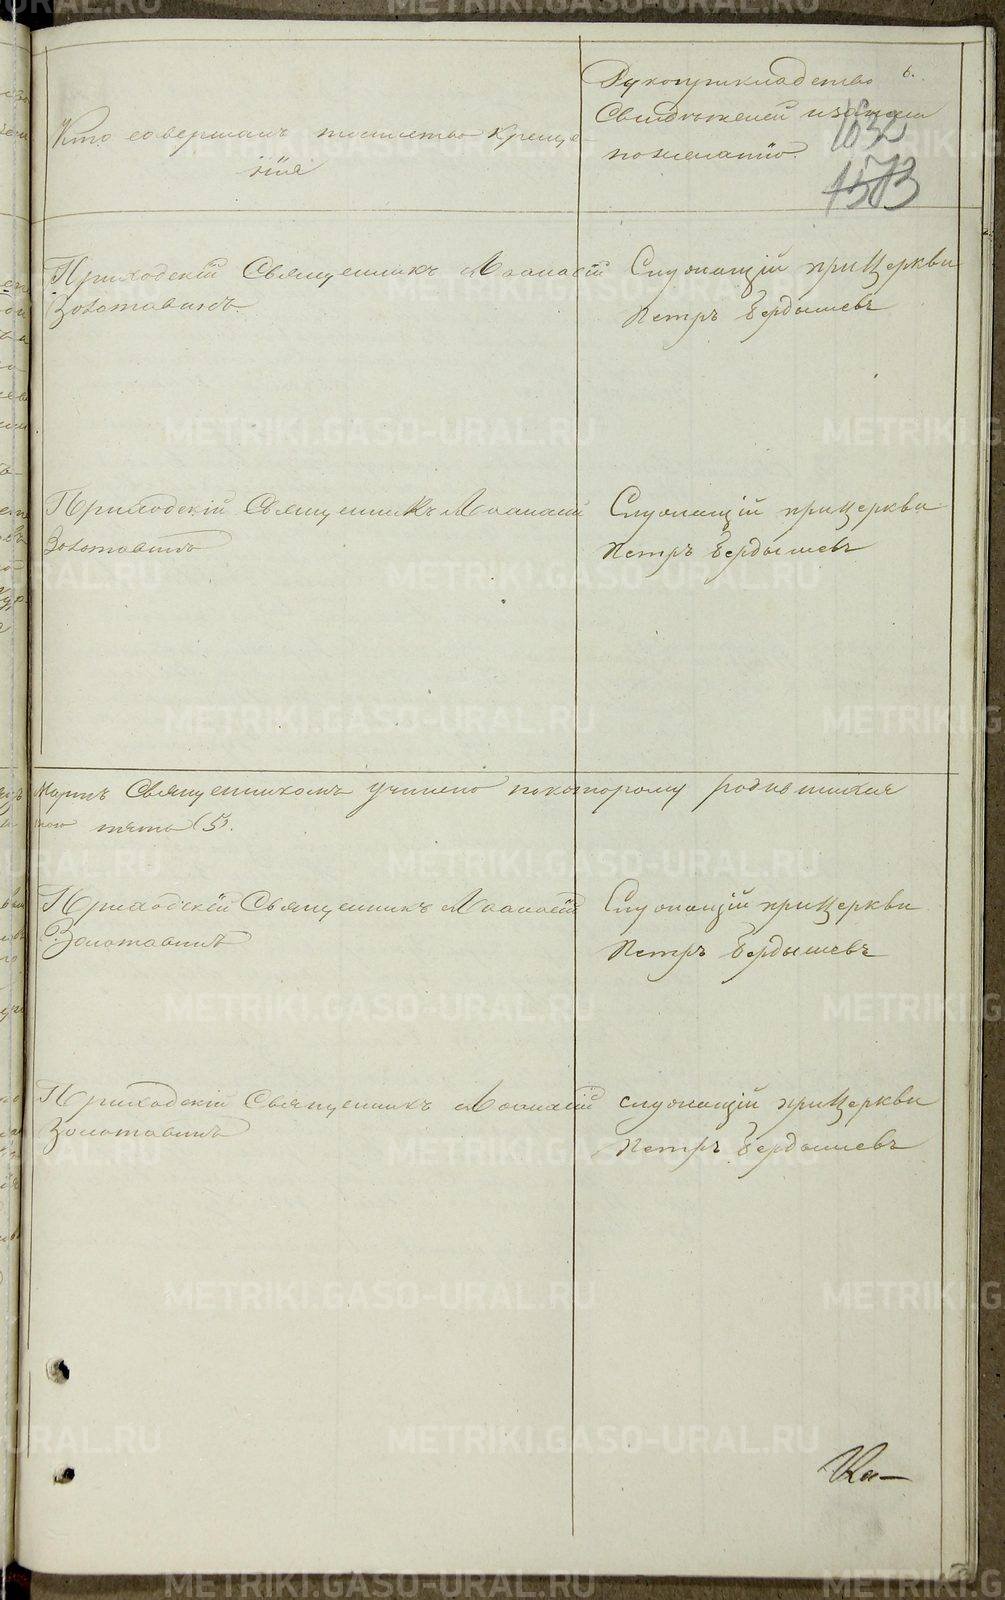 6.
Рукоприкладство
Свидѣтелей записи
по желанію.
1032
1573
Кто совершалъ таинство креще
нія
Приходскій Священникъ Аѳанасій
Золотавинъ.
Служащій при Церкви
Петръ Бердышевъ
Приходскій Священникъ Аѳанасій
Золотавинъ
Служащій при Церкви
Петръ Бердышевъ
Священникомъ учинено по которому родившихся
пять (5).
Приходскій Священникъ Аѳанасій
Золотавинъ
Служащій при Церкви
Петръ Бердышевъ
Приходскій Священникъ Аѳанасій
Золотавинъ
служащій при Церкви
Петръ Бердышевъ
METRIKI.GASO-URAL.RU